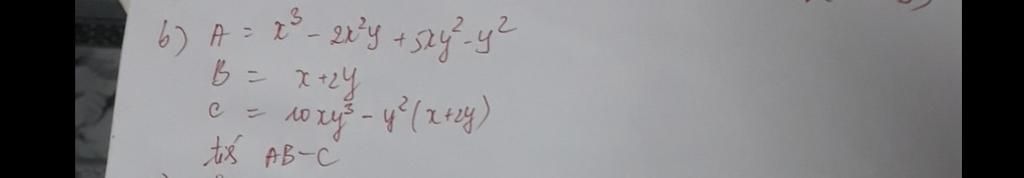 b) A = x³ - 2x²y + 5xy² - y²
B = x + 2y
C = 10xy³ - y²(x+2y)
AB - C